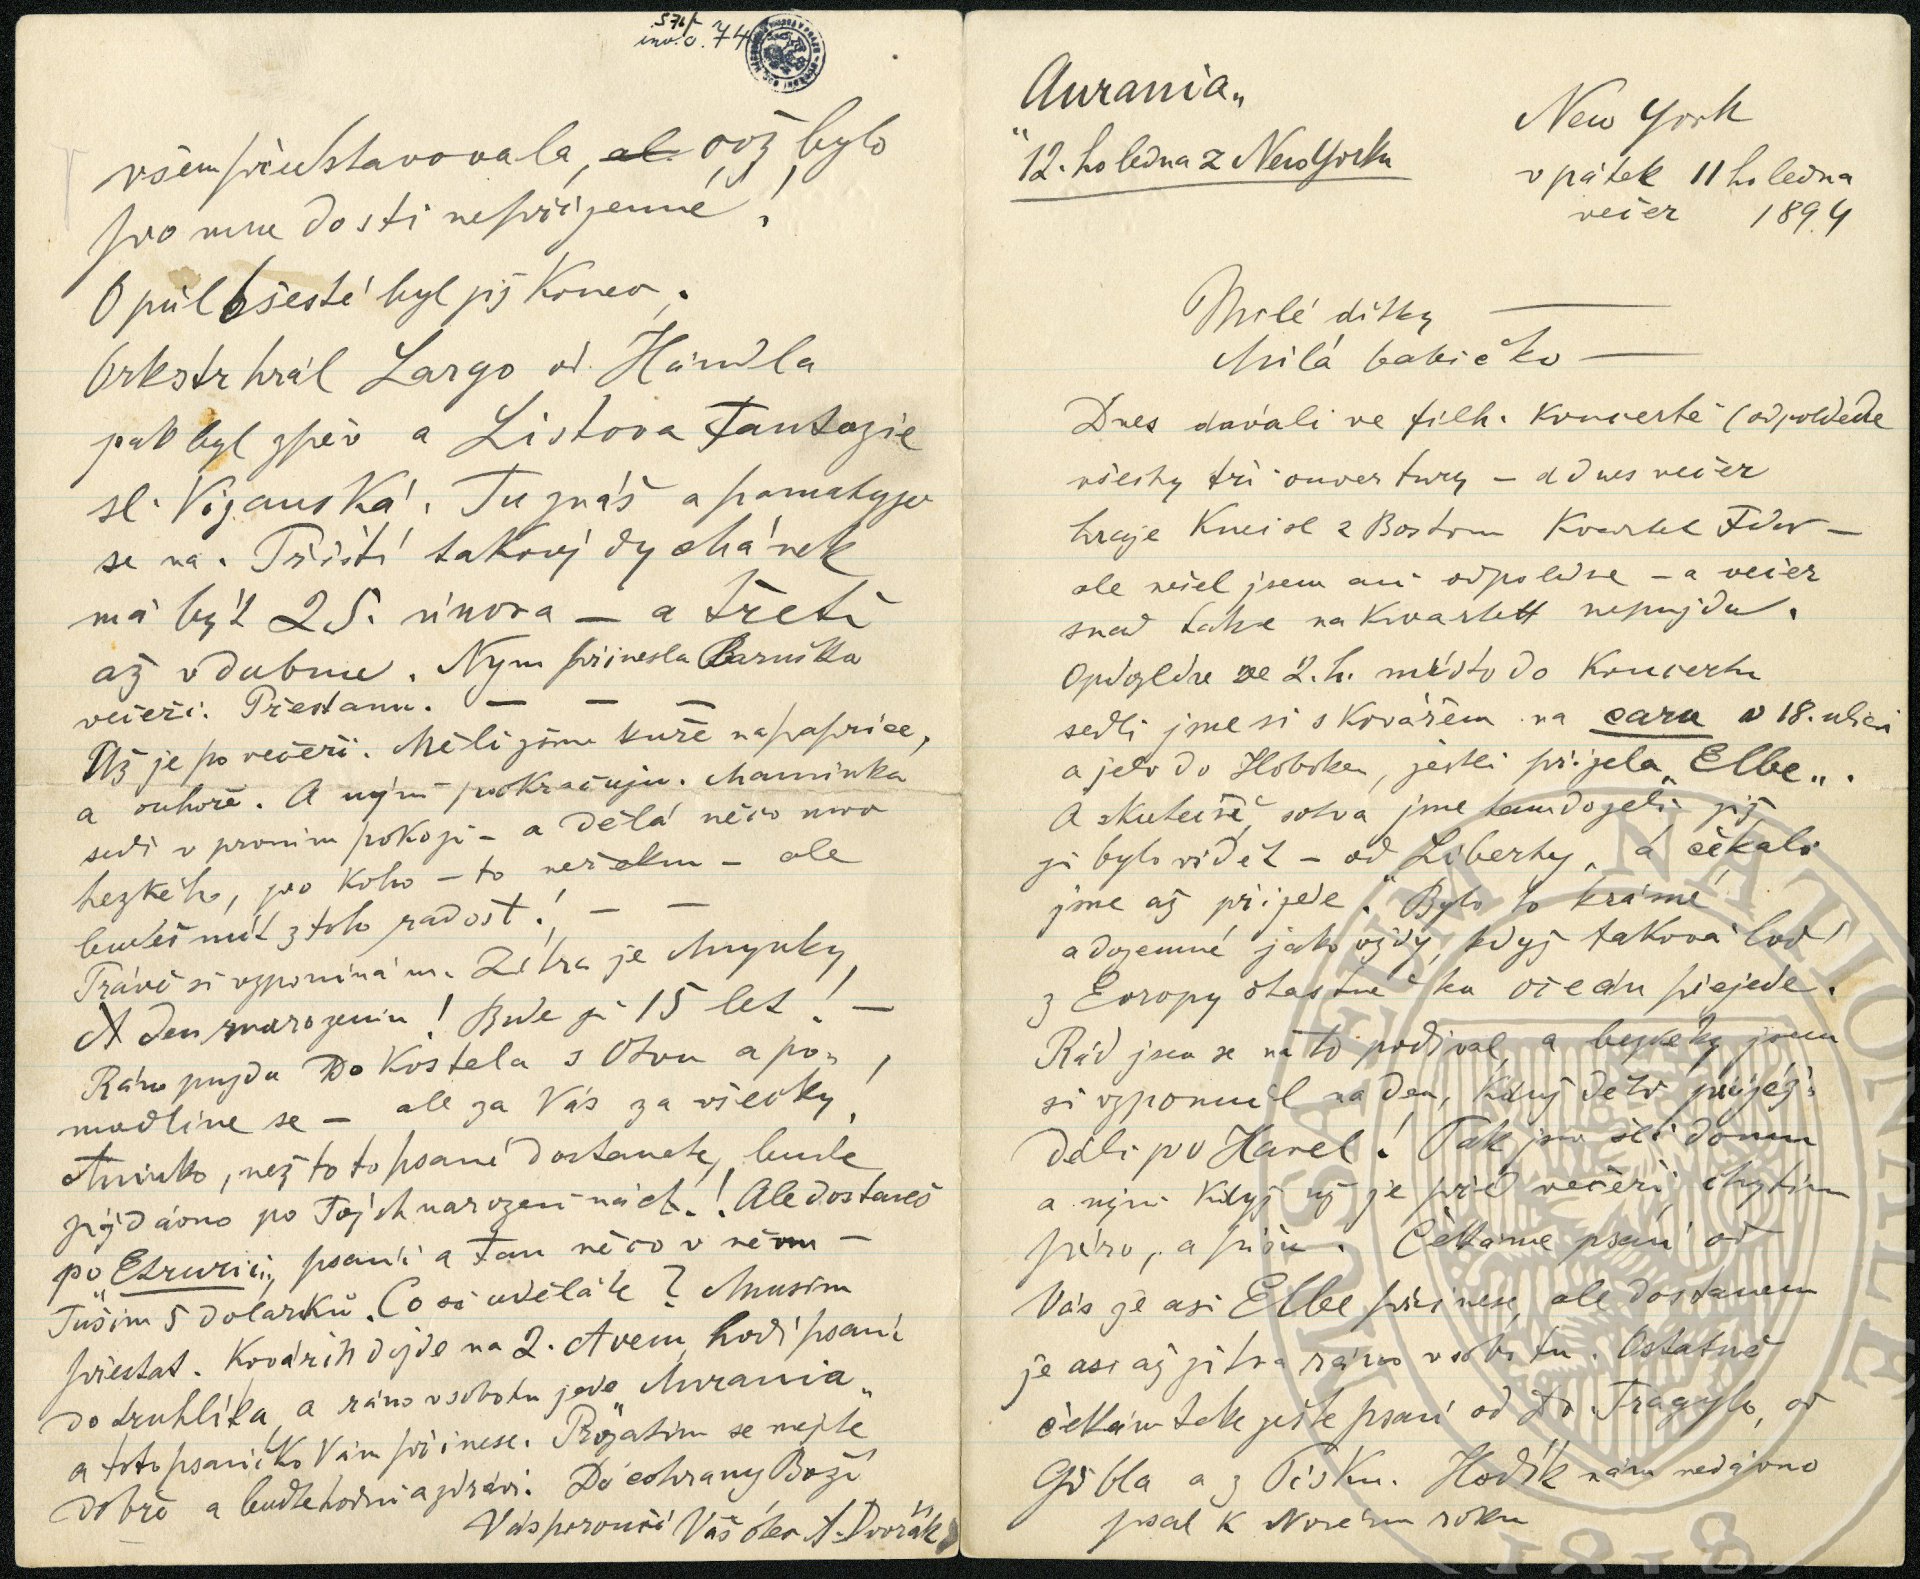 571/
inv. č. 74
všem představovala, al. což bylo
pro mne dosti nepříjemné!
O půl 6 šesté byl již konec.
Orkstr hrál Largo od Händla
pak byl zpěv a Listova Fantazie
sl. Vijanská. Tu znáš a pamatuješ
se na. Příští takový dychánek
má být 25. února – a třetí
až v dubnu. Nyní přinesla Baruška
večeři. Přestanu. – – –
Už je po večeři. Měli jsme kuře na paprice,
a ouhoře. A nyní pokračuju. Maminka
sedí v prvním pokoji – a dělá něco moc
hezkého, pro koho – to neřeknu – ale
budeš mít z toho radost! – –
Právě si vzpomínám. Zítra je Mgnky
A den narozenin! Bude jí 15 let! –
Ráno pujdu Do Kostela s Otou a po-
modlíme se – ale za Vás za všecky!
Aninko, než toto psaní dostanete, bude
již dávno po Tvých narozeninách! Ale dostaneš
po „Etrurii„ psaní a tam něco v něm –
Tuším 5 dolarků. Co si uděláte? Musím
přestat. Kovářík dojde na 2. Aveni, hodí psaní
do truhlíka, a ráno v sobotu jede „Aurania„
a toto psaníčko Vám přinese. Prozatím se mějte
dobře a buďte hodní a zdrávi. Do ochrany Boží
Vás poroučí Váš otec A. Dvořák
Aurania„
"12. ho ledna z NewYorku
New York
v pátek 11 ho ledna
večer 1894
Milé dítky —
Milá babičko —
Dnes dávali ve filh. koncertě (odpoledne
všecky tři ouvertury – a dnes večer
hraje Kneisl z Bostonu Kvartet Fdur –
ale nešel jsem ani odpoledne – a večer
snad take na Kvartett nepujdu.
Opdoledne ve 2. h. místo do Koncertu
sedli jsme si s Kovářem na caru v 18. ulici
a jelo do Hoboken, jestli přijela „Elbe„.
A skutečně, sotva jsme tam dojeli již
ji bylo vidět – od „Liberty„ a čekali
jsme až přijede. Bylo to krásné
a dojemné jako vždy, když taková loď
z Evropy šťastně ku ocedu přijede.
Rád jsem se na to podíval, a bezděky jsem
si vzpomněl na den, kdyš děti přijíž-
děli po Havel! Tak jsme šli domu
a nyní když už je před večeří, chytím
péro, a píšu. Čekáme psaní od
Vás je asi Elbe přinese, ale dostanem
je asi až zítra ráno v sobotu. Ostatně
čekám take ještě psaní od Dr. Tragyho, od
Göbla a z Písku. Hodík nám nedávno
psal k Novému roku
MUSAEUM NATIONALE
1818